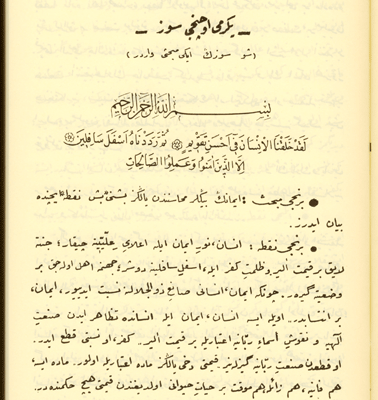 ـ يگرمى اوچنجى سوز ـ
( شو سوزك ايكى مبحثى واردر )
بِسْمِ اللّٰهِ الرَّحْمٰنِ الرَّحِيمِ
لَقَدْ خَلَقْنَا الْاِنْسَانَ فِى اَحْسَنِ تَقْوِيمٍ ۞ ثُمَّ رَدَدْنَاهُ اَسْفَلَ سَافِلِينَ ۞
اِلَّا الَّذِينَ اٰمَنُوا وَ عَمِلُوا الصَّالِحَاتِ
● برنجى مبحث : ايمانك بيڭلر محاسنندن يالڭز بشنى بش نقطه ايچنده
بيان ايدرز.
● برنجى نقطه : انسان، نور ايمان ايله اعلاى عليّينه چيقار؛ جنته
لايق بر قيمت آلير. و ظلمت كفر ايله، اسفل سافلينه دوشر؛ جهنمه اهل اوله‌جق بر
وضعيته گيرر. چونكه ايمان، انسانى صانع ذوالجلالنه نسبت ايدييور، ايمان،
بر انتسابدر. اويله ايسه انسان، ايمان ايله انسانده تظاهر ايدن صنعت
الٰهيه و نقوش اسماء ربّانيه اعتباريله بر قيمت آلير. كفر، او نسبتى قطع ايدر.
او قطعدن صنعت ربّانيه گيزلنير. قيمتى دخى يالڭز ماده اعتباريله اولور. ماده ايسه،
هم فانيه، هم زائله، هم موقت بر حيات حيوانى اولديغندن قيمتى هيچ حكمنده‌در.